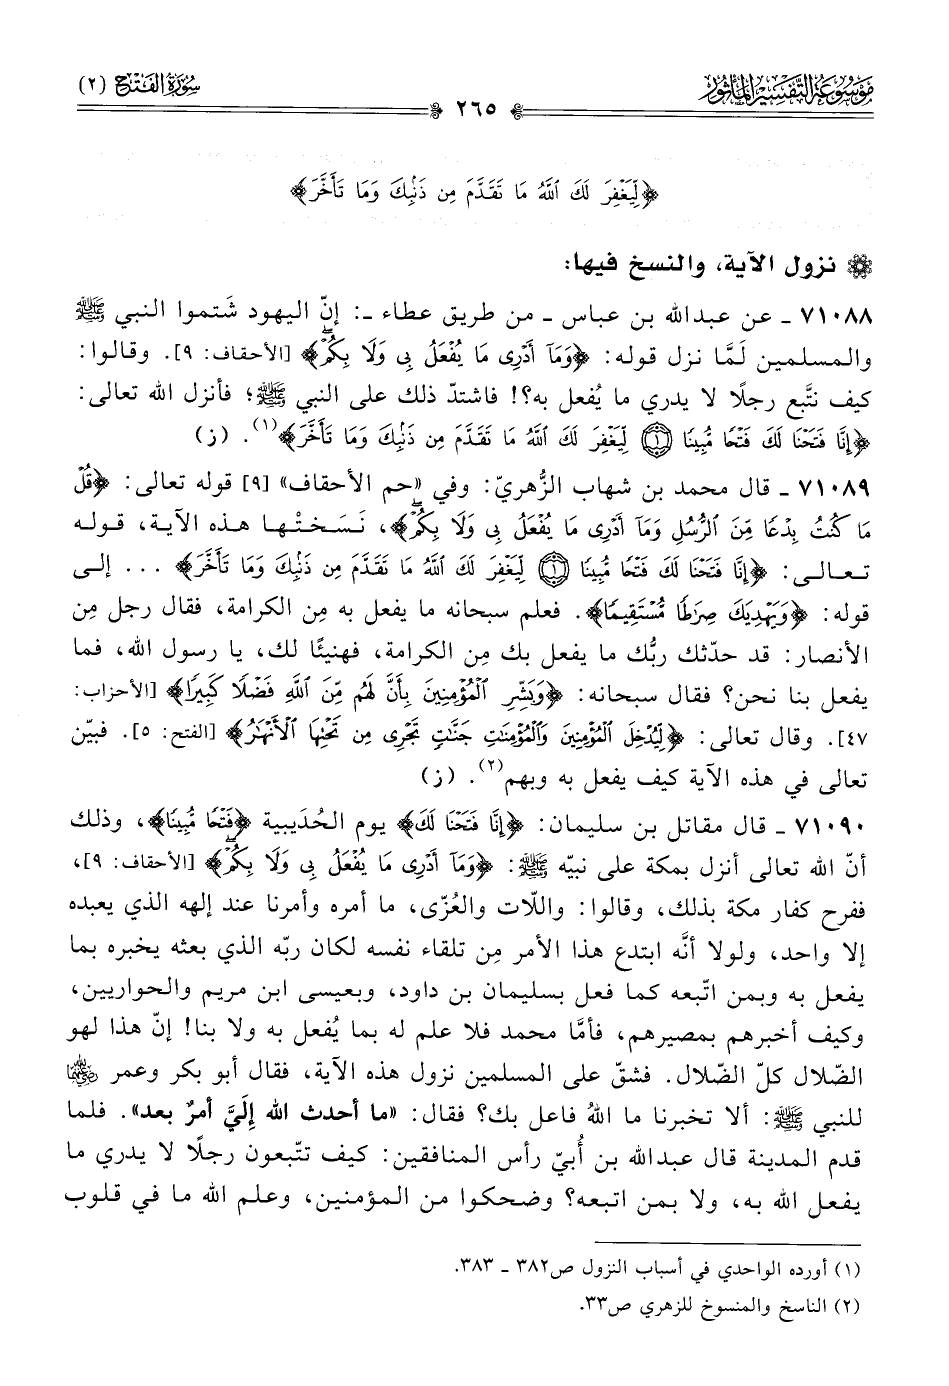 مَوْسُوعَةُ التَّفْسِيرِ المَأْثُورِ
٢٦٥
سُورَةُ الفَتْحِ (٢)
﴿لِّيَغْفِرَ لَكَ ٱللَّهُ مَا تَقَدَّمَ مِن ذَنۢبِكَ وَمَا تَأَخَّرَ﴾
نزول الآية، والنسخ فيها:
٧١٠٨٨ ـ عن عبدالله بن عباس ـ من طريق عطاء ـ: إنّ اليهود شَتموا النبي ﷺ
والمسلمين لَمَّا نزل قوله: ﴿وَمَآ أَدْرِى مَا يُفْعَلُ بِى وَلَا بِكُمْ﴾ [الأحقاف: ٩]. وقالوا:
كيف نتَّبع رجلًا لا يدري ما يُفعل به؟! فاشتدّ ذلك على النبي ﷺ؛ فأنزل الله تعالى:
﴿إِنَّا فَتَحْنَا لَكَ فَتْحًا مُّبِينًا ۝١ لِّيَغْفِرَ لَكَ ٱللَّهُ مَا تَقَدَّمَ مِن ذَنۢبِكَ وَمَا تَأَخَّرَ﴾(١). (ز)
٧١٠٨٩ ـ قال محمد بن شهاب الزُّهريّ: وفي «حم الأحقاف» [٩] قوله تعالى: ﴿قُلْ
مَا كُنتُ بِدْعًا مِّنَ ٱلرُّسُلِ وَمَآ أَدْرِى مَا يُفْعَلُ بِى وَلَا بِكُمْ﴾، نَسَختْها هذه الآية، قوله
تعالى: ﴿إِنَّا فَتَحْنَا لَكَ فَتْحًا مُّبِينًا ۝١ لِّيَغْفِرَ لَكَ ٱللَّهُ مَا تَقَدَّمَ مِن ذَنۢبِكَ وَمَا تَأَخَّرَ﴾ ... إلى
قوله: ﴿وَيَهْدِيَكَ صِرَٰطًا مُّسْتَقِيمًا﴾. فعلم سبحانه ما يفعل به مِن الكرامة، فقال رجل مِن
الأنصار: قد حدّثك ربُّك ما يفعل بك مِن الكرامة، فهنيئًا لك، يا رسول الله، فما
يفعل بنا نحن؟ فقال سبحانه: ﴿وَبَشِّرِ ٱلْمُؤْمِنِينَ بِأَنَّ لَهُم مِّنَ ٱللَّهِ فَضْلًا كَبِيرًا﴾ [الأحزاب:
٤٧]. وقال تعالى: ﴿لِّيُدْخِلَ ٱلْمُؤْمِنِينَ وَٱلْمُؤْمِنَٰتِ جَنَّٰتٍ تَجْرِى مِن تَحْتِهَا ٱلْأَنْهَٰرُ﴾ [الفتح: ٥]. فبيّن
تعالى في هذه الآية كيف يفعل به وبهم(٢). (ز)
٧١٠٩٠ ـ قال مقاتل بن سليمان: ﴿إِنَّا فَتَحْنَا لَكَ﴾ يوم الحُدَيبية ﴿فَتْحًا مُّبِينًا﴾، وذلك
أنّ الله تعالى أنزل بمكة على نبيّه ﷺ: ﴿وَمَآ أَدْرِى مَا يُفْعَلُ بِى وَلَا بِكُمْ﴾ [الأحقاف: ٩]،
ففرح كفار مكة بذلك، وقالوا: واللّات والعُزّى، ما أمره وأمرنا عند إلهه الذي يعبده
إلا واحد، ولولا أنَّه ابتدع هذا الأمر مِن تلقاء نفسه لكان ربّه الذي بعثه يخبره بما
يفعل به وبمن اتّبعه كما فعل بسليمان بن داود، وبعيسى ابن مريم والحواريين،
وكيف أخبرهم بمصيرهم، فأمَّا محمد فلا علم له بما يُفعل به ولا بنا! إنّ هذا لهو
الضّلال كلّ الضّلال. فشقّ على المسلمين نزول هذه الآية، فقال أبو بكر وعمر رضي الله عنهما
للنبي ﷺ: ألا تخبرنا ما اللهُ فاعل بك؟ فقال: «ما أحدث الله إلَيَّ أمرٌ بعد». فلما
قدم المدينة قال عبدالله بن أُبيّ رأس المنافقين: كيف تتّبعون رجلًا لا يدري ما
يفعل الله به، ولا بمن اتبعه؟ وضحكوا من المؤمنين، وعلم الله ما في قلوب
(١) أورده الواحدي في أسباب النزول ص٣٨٢ ـ ٣٨٣.
(٢) الناسخ والمنسوخ للزهري ص٣٣.